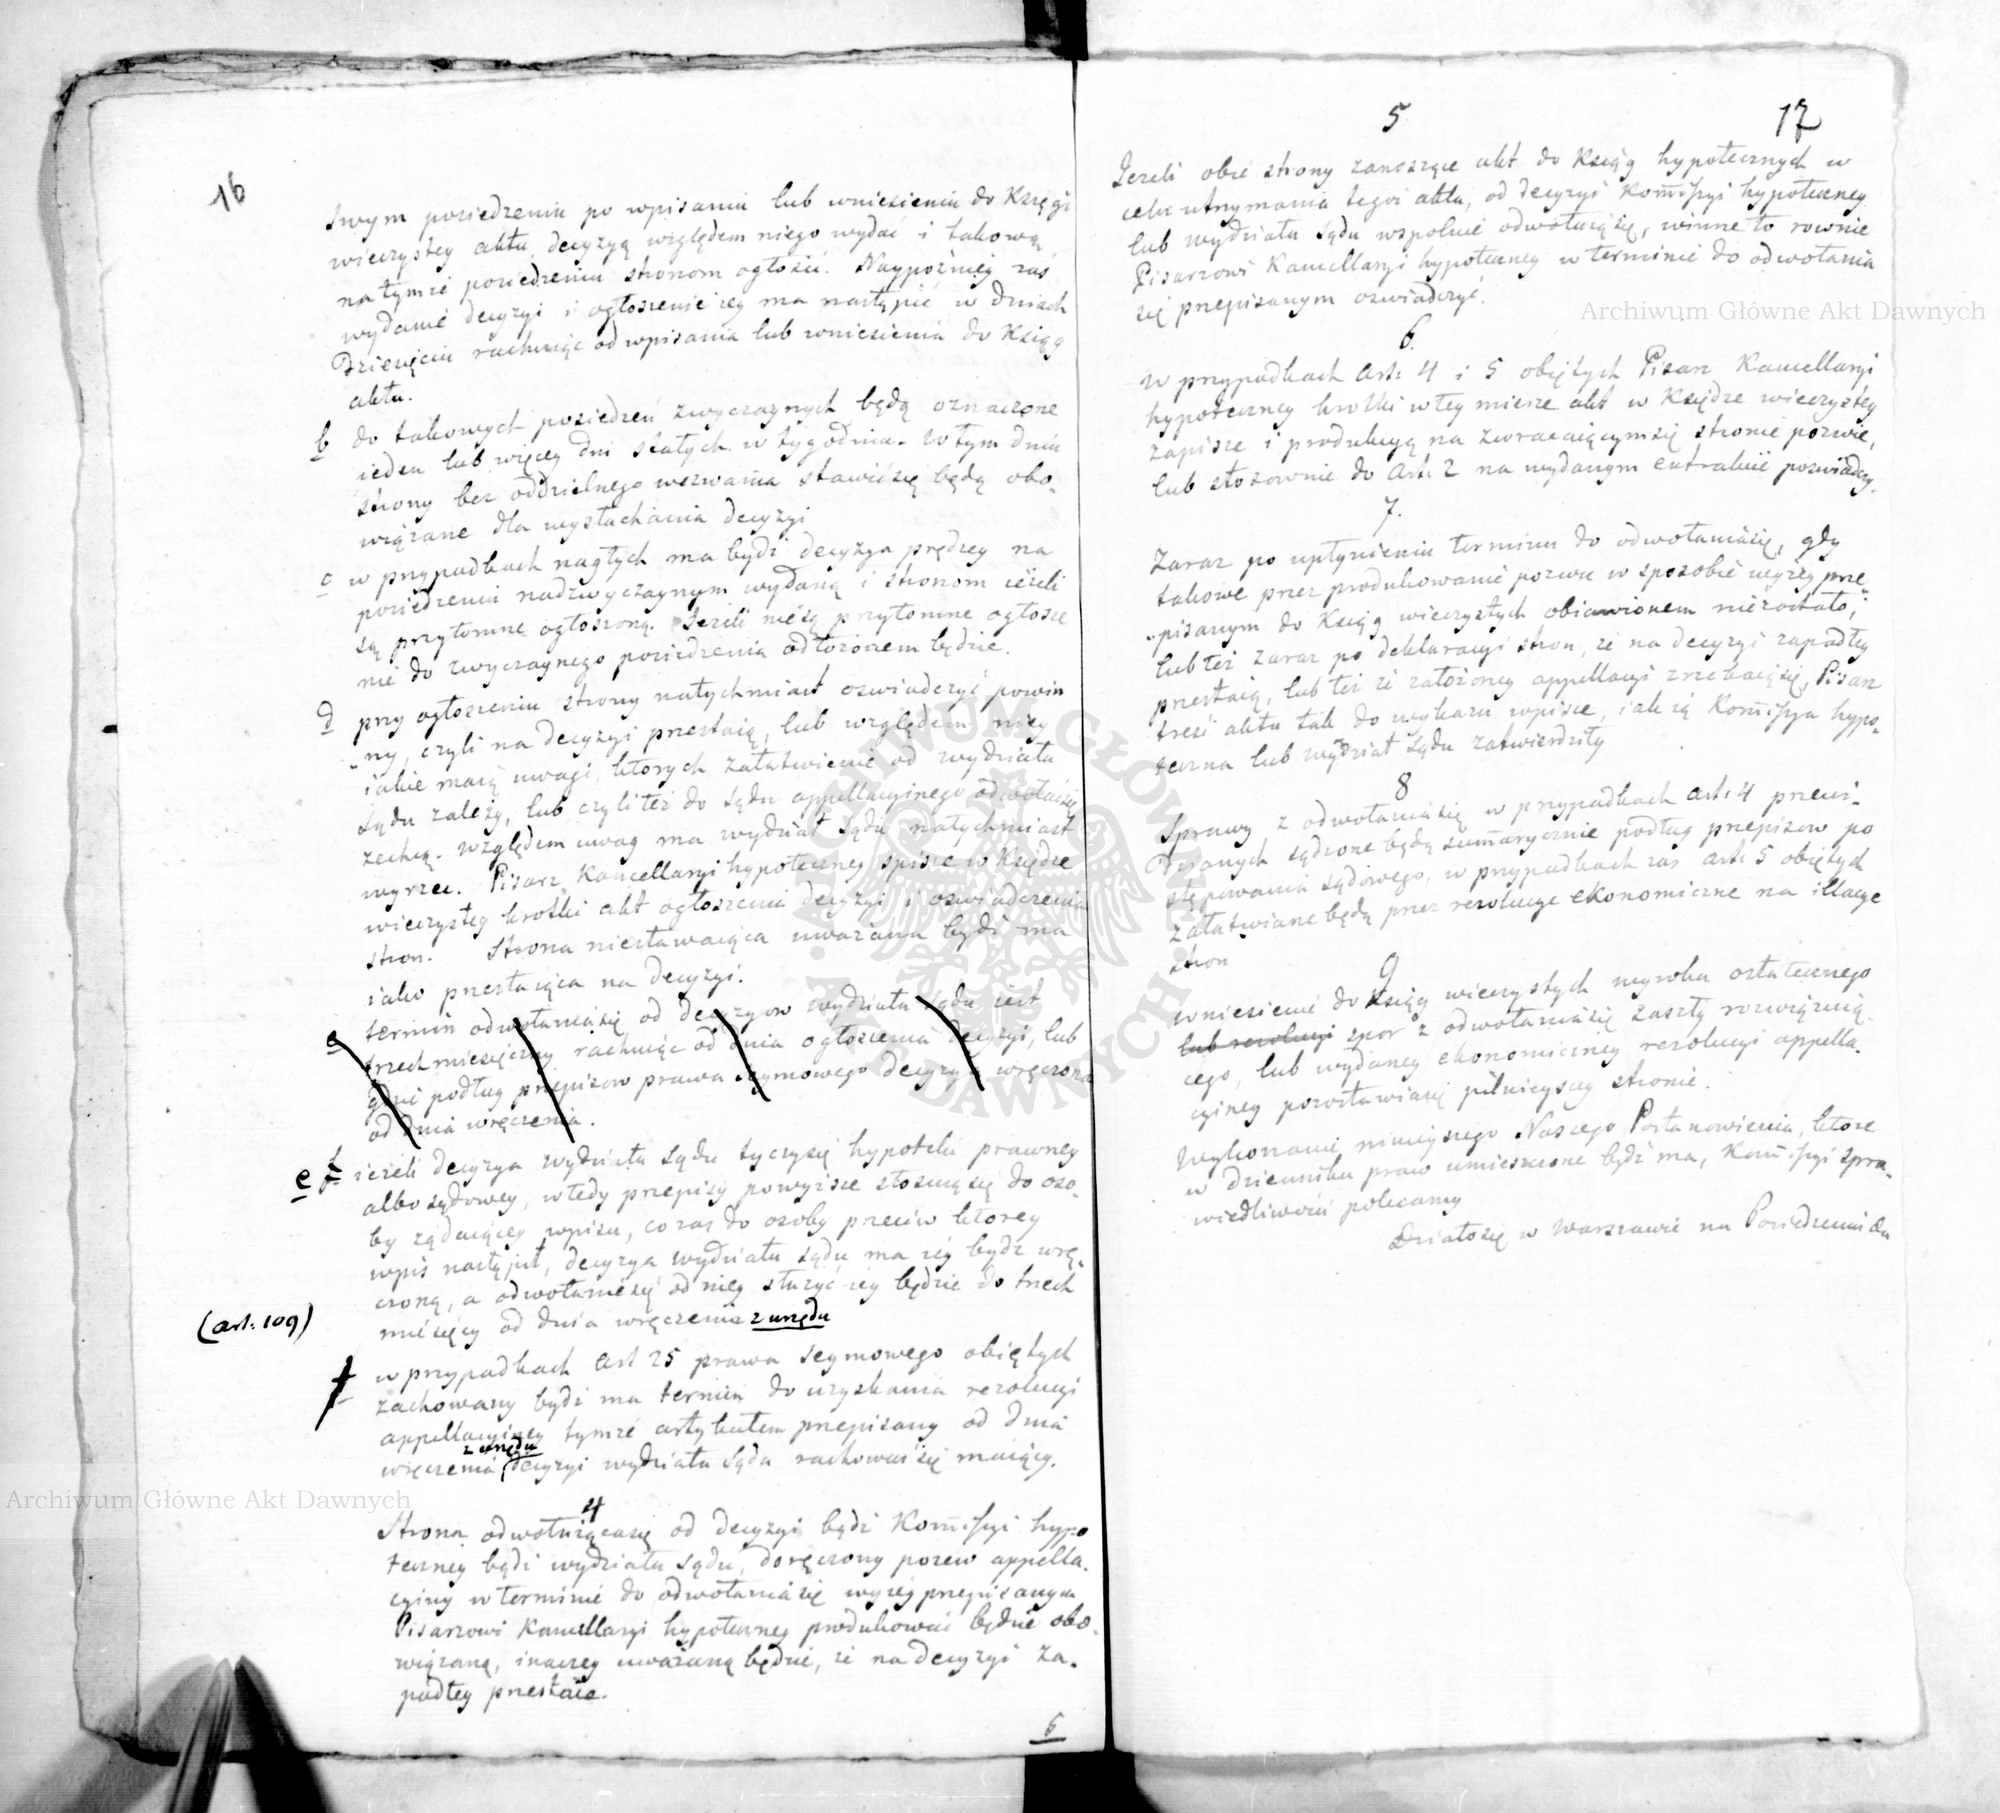 16
swym posiedzeniu po wpisaniu lub wniesieniu do Księgi
wieczystey aktu, decyzyą względem niego wydać i takową
na tymże posiedzeniu stronom ogłosić. Naypóźniey zaś
wydanie decyzyi i ogłoszenie iey ma nastąpić w dniach
dziesięciu rachuiąc od wpisania lub wniesienia do Ksiąg
aktu.
b do takowych posiedzeń zwyczaynych będą oznaczone
ieden lub więcey dni stałych w tygodniu. W tym dniu
strony bez oddzielnego wezwania stawić się będą obo„
wiązane dla wysłuchania decyzyi
c w przypadkach nagłych ma bydź decyzya prędzey na
posiedzeniu nadzwyczaynym wydaną i stronom ieżeli
są przytomne ogłoszoną. Jeżeli nie są przytomne ogłosze
nie do zwyczaynego posiedzenia odłożonem będzie.
d przy ogłoszeniu strony natychmiast oswiadczyć powin
„ny, czyli na decyzyi przestaią, lub względem niey
iakie maią uwagi, których załatwienie od wydziału
Sądu zależy, lub czyli też do Sądu appellacyinego odwołać się
zechcą. Względem uwag ma wydział Sądu natychmiast
wyrzec. Pisarz Kancellaryi hypoteczney spisze w Księdze
wieczystey krotki akt ogłoszenia decyzyi i oswiadczenia
stron. Strona niestawaiąca uważana bydź ma
iako przestaiąca na decyzyi.
e termin odwołania się od decyzyow wydziału Sądu iest
trzechmiesięczny rachuiąc od dnia ogłoszenia decyzyi, lub
gdzie podług przepisow prawa Seymowego decyzya wręczona
od dnia wręczenia.
e f ieżeli decyzya wydziału Sądu tyczy się hypoteki prawney
albo sądowey, wtedy przepisy powyższe stosuią się do oso„
by żądaiącey wpisu, co zas do osoby przeciw ktorey
wpis nastąpił, decyzya wydziału sądu ma iey bydź wrę„
czoną, a odwołanie się od niey służyć iey będzie do trzech
miesięcy od dnia wręczenia z urzędu
(art: 109)
f w przypadkach art 25 prawa Seymowego obiętych
zachowany bydź ma termin do uzyskania rezolucyi
appellacyiney tymże artykułem przepisany od dnia
z urzędu
wręczenia decyzyi wydziału Sądu rachować się maiący.
4
Strona odwołuiąca się od decyzyi bądź Kommissyi hypo
teczney bądź wydziału sądu, doręczony pozew appella„
cyiny w terminie do odwołania się wyżey przepisanym
Pisarzowi Kancellaryi hypoteczney produkować będzie obo„
wiązaną, inaczey uważaną będzie, że na decyzyi za„
padłey przestaie.
5
17
5
Jeżeli obie strony zanoszące akt do Ksiąg hypotecznych w
celu utrzymania tegoż aktu, od decyzyi Kommissyi hypoteczney
lub wydziału Sądu wspolnie odwołuią się, winne to rownie
Pisarzowi Kancellaryi hypoteczney w terminie do odwołania
się przepisanym oswiadczyć.
6.
W przypadkach art: 4 i 5 obiętych Pisarz Kancellaryi
hypoteczney krotki w tey mierze akt w Księdze wieczystey
zapisze i produkcyą na zwracaiącym się stronie pozwie,
lub stosownie do art: 2 na wydanym extrakcie poswiadczy.
7.
Zaraz po upłynieniu terminu do odwołania się, gdy
takowe przez produkowanie pozwu w sposobie wyżey prze„
„pisanym do Ksiąg wieczystych obiawionem nie zostało,
lub też zaraz po deklaracyi stron, że na decyzyi zapadłey
przestaią, lub też że założoney appellacyi zrzekaią się, Pisarz
treść aktu tak do wykazu wpisze, iak ią Kommissya hypo„
teczna lub wydział Sądu zatwierdziły
8
Sprawy z odwołania się w przypadkach art: 4 przewi„
dzianych sądzone będą summarycznie podług przepisow po
stępowania sądowego, w przypadkach zas art: 5 obiętych
załatwiane będą przez rezolucye ekonomiczne na illacye
stron
9
Wniesienie do Ksiąg wieczystych wyroku ostatecznego
lub rezolucyi spor z odwołania się zaszły rozwiązuią„
cego, lub wydaney ekonomiczney rezolucyi appella„
cyiney pozostawia się pilnieyszey stronie.
Wykonanie ninieyszego Naszego Postanowienia, ktore
w dzienniku praw umieszczone bydź ma, Kommissyi Spra„
wiedliwości polecamy
Działo się w Warszawie na Posiedzeniu dn
Archiwum Główne Akt Dawnych
Archiwum Główne Akt Dawnych
ARCHIWUM GŁÓWNE AKT DAWNYCH